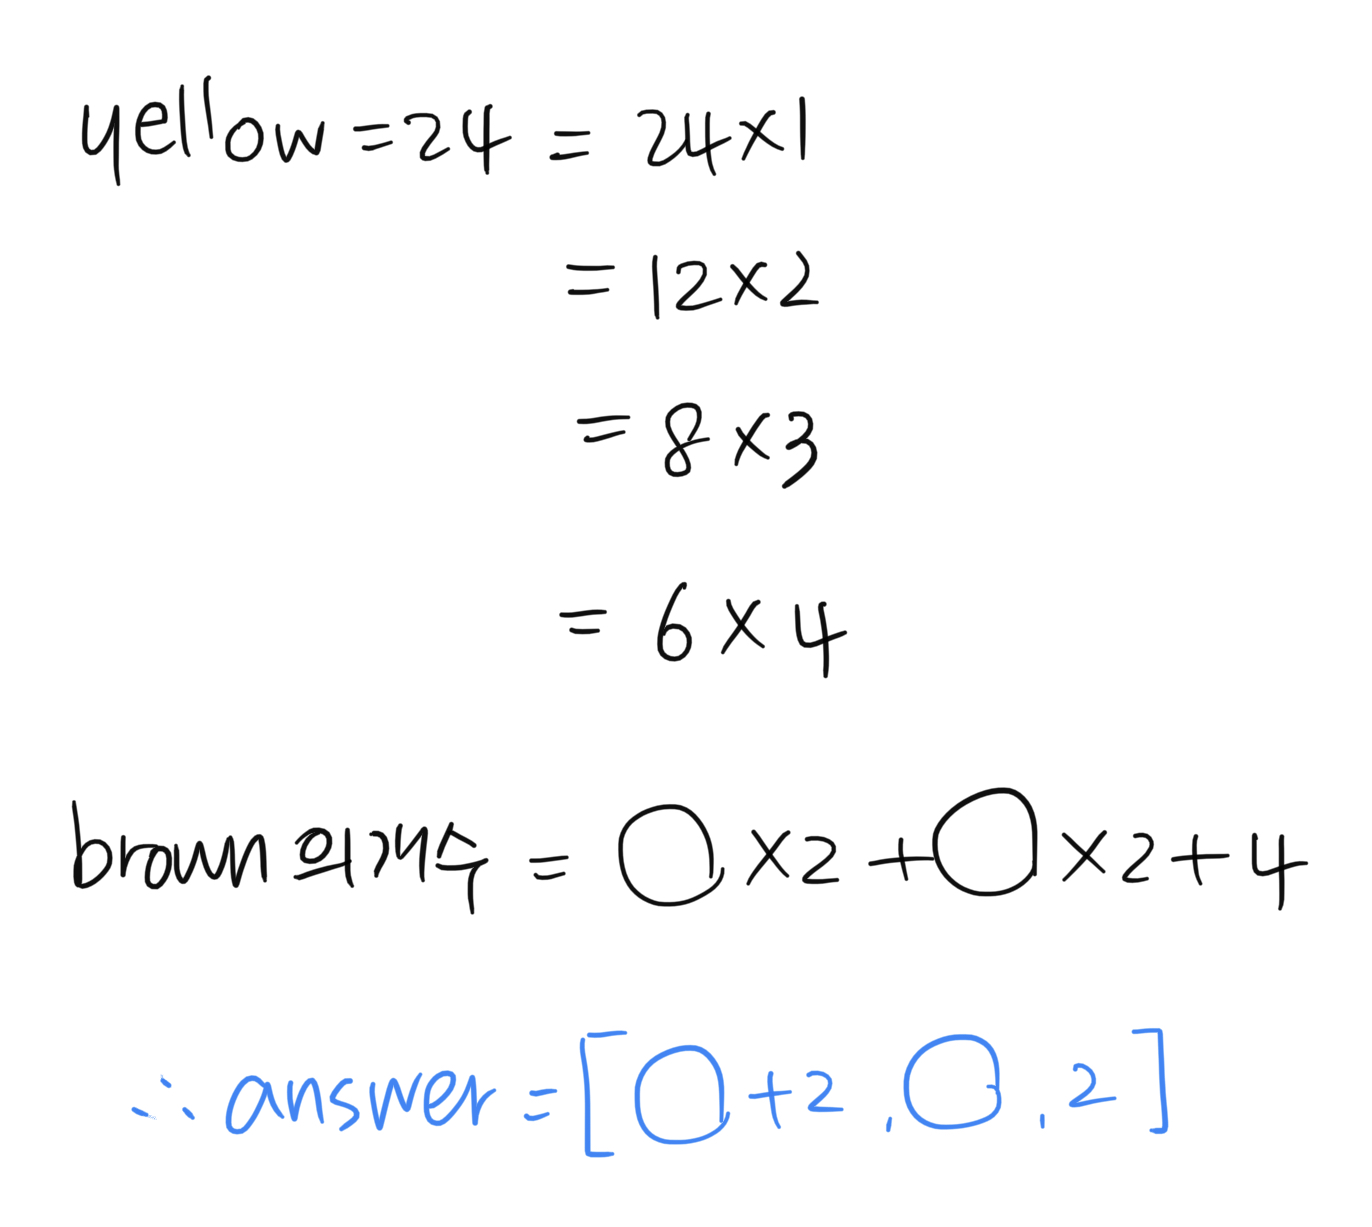 yellow = 24 = 24 × 1
= 12 × 2
= 8 × 3
= 6 × 4
brown 의 개수 = ○ × 2 + ○ × 2 + 4
∴ answer = [ ○ + 2 , ○ , 2 ]